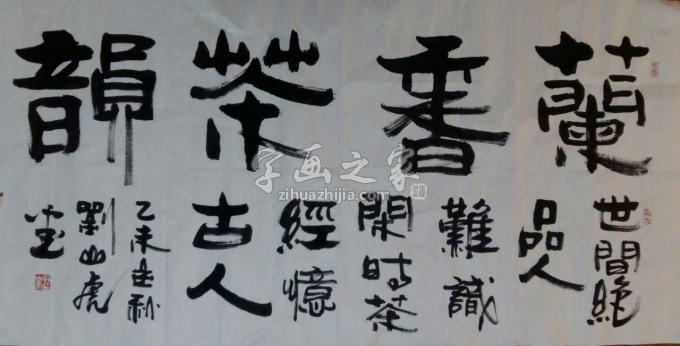 蘭香茶韻
世間絶
品人
難識
閑時茶
經憶
古人
乙未秋
劉山虎
字画之家
zihuazhijia.com